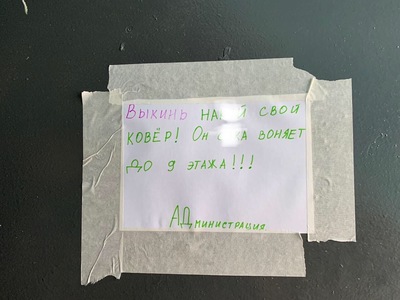 Выкинь на свой
ковёр! Он воняет
до 9 этажа!!!
АДминистрация